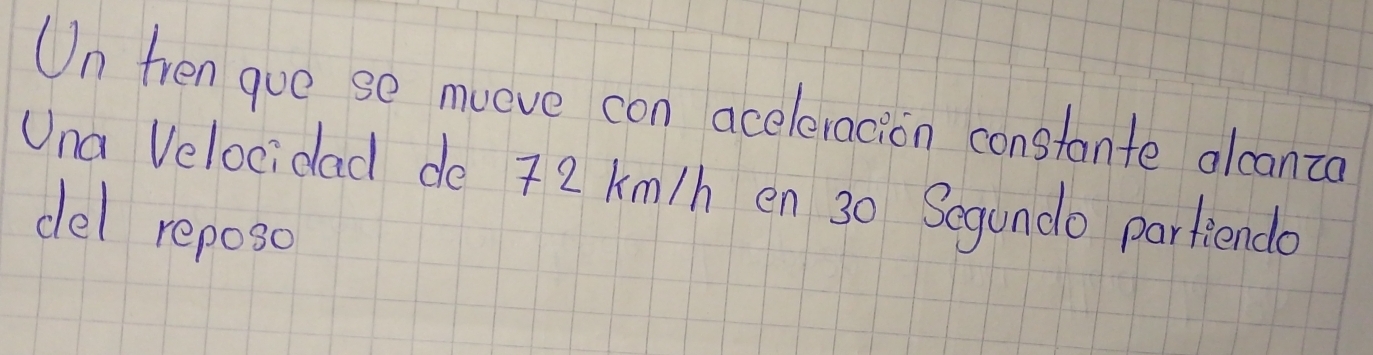 Un tren que se mueve con aceleración constante alcanza
Una Velocidad de 72 km/h en 30 Segundo partiendo
del reposo